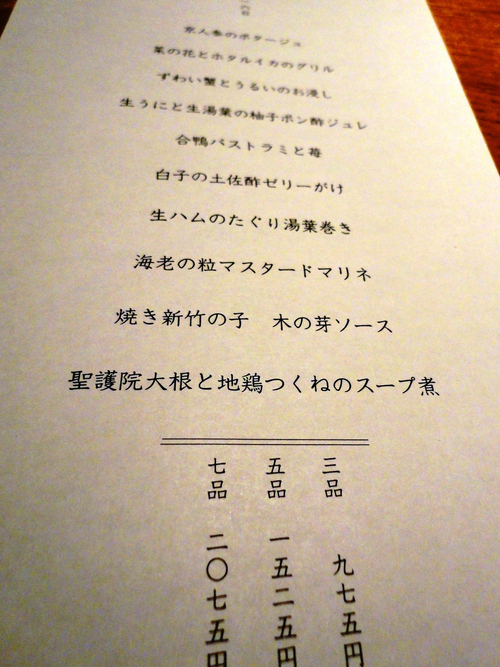 京人参のポタージュ
菜の花とホタルイカのグリル
ずわい蟹とうるいのお浸し
生うにと生湯葉の柚子ポン酢ジュレ
合鴨パストラミと苺
白子の土佐酢ゼリーがけ
生ハムのたぐり湯葉巻き
海老の粒マスタードマリネ
焼き新竹の子　木の芽ソース
聖護院大根と地鶏つくねのスープ煮
三品　九七五円
五品　一五二五円
七品　二〇七五円